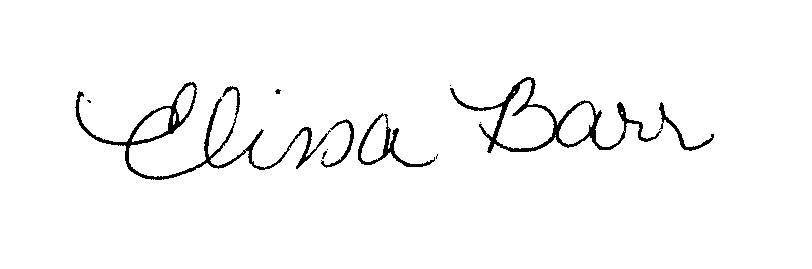 Elissa Barr